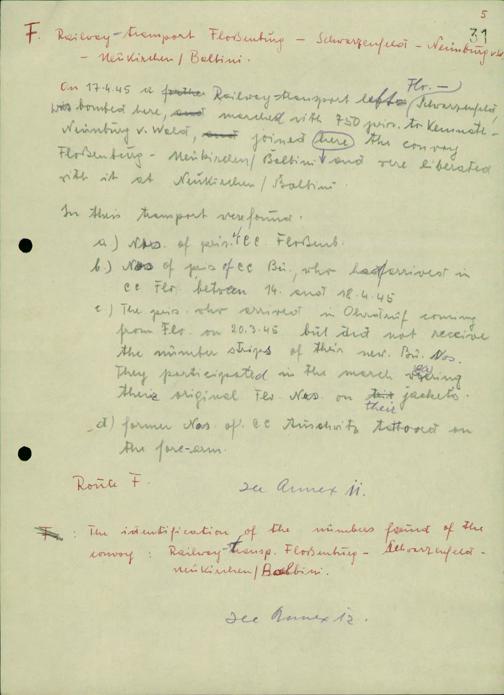 5
31
F. Railway-transport Floßenbürg - Schwarzenfeld - Neunburg v.W.
- Neukirchen/Balbini.
On 17.4.45 a further Railway-transport left Flo. - Schwarzenfeld,
was bombed here, and marched with 750 pris. to Kemnath-
Neunburg v. Wald, and joined here the convoy
Floßenbürg - Neukirchen/Balbini and were liberated
with it at Neukirchen/Balbini.
In this transport were found.
a) Nos. of pris. of CC Floßenb.
b) Nos of pris of CC Bu., who had arrived in
CC Flo. between 14. and 18.4.45
c) The pris. who arrived in Ohrdruf coming
from Flo. on 20.3.45 but did not receive
the number strips of their new Bu. Nos.
They participated in the march wearing
their original Flo. Nos. on their jackets.
d) former Nos. of CC Auschwitz tattooed on
the fore-arm.
Route F. see Annex 11.
F. : The identification of the numbers found of the
convoy : Railway-transp. Floßenbürg - Schwarzenfeld -
Neukirchen/Balbini.
see Annex 12.